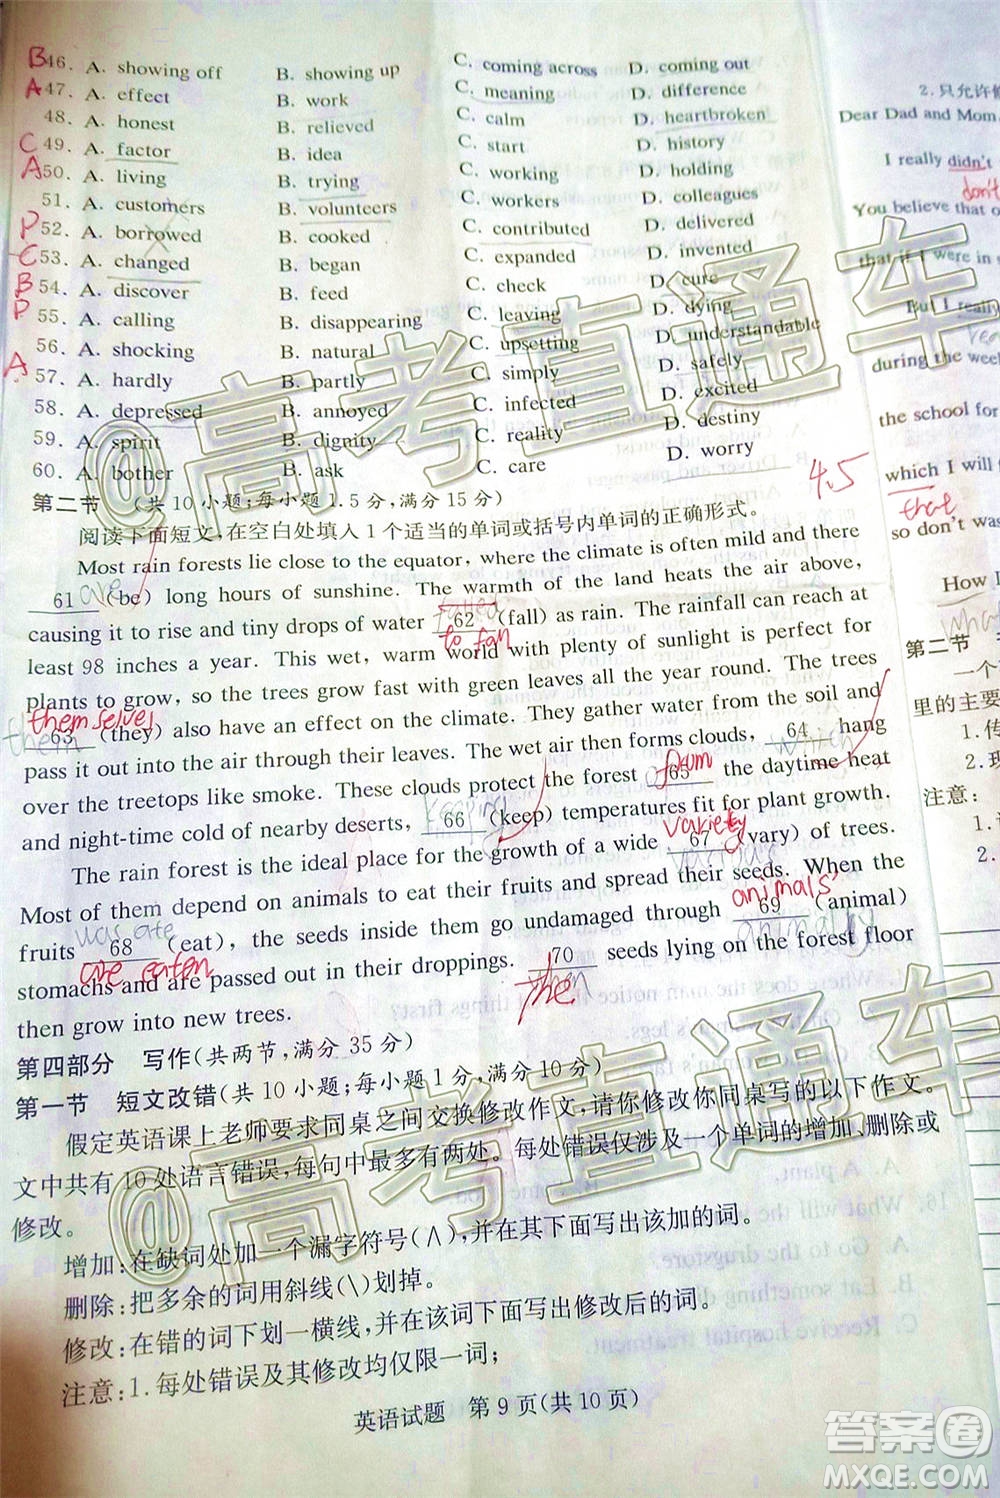 B 46. A. showing off B. showing up C. coming across D. coming out
A 47. A. effect B. work C. meaning D. difference
48. A. honest B. relieved C. calm D. heartbroken
C 49. A. factor B. idea C. start D. history
A 50. A. living B. trying C. working D. holding
51. A. customers B. volunteers C. workers D. colleagues
52. A. borrowed B. cooked C. contributed D. delivered
C 53. A. changed B. began C. expanded D. invented
B 54. A. discover B. feed C. check D. cure
55. A. calling B. disappearing C. leaving D. dying
56. A. shocking B. natural C. upsetting D. understandable
A 57. A. hardly B. partly C. simply D. safely
58. A. depressed B. annoyed C. infected D. excited
59. A. spirit B. dignity C. reality D. destiny
60. A. bother B. ask C. care D. worry
4.5
第二节 (共10小题;每小题1.5分,满分15分)
阅读下面短文,在空白处填入1个适当的单词或括号内单词的正确形式。
Most rain forests lie close to the equator, where the climate is often mild and there
61 (be) long hours of sunshine. The warmth of the land heats the air above,
are
causing it to rise and tiny drops of water 62 (fall) as rain. The rainfall can reach at
to fall
least 98 inches a year. This wet, warm world with plenty of sunlight is perfect for
plants to grow, so the trees grow fast with green leaves all the year round. The trees
themselves
63 (they) also have an effect on the climate. They gather water from the soil and
them
pass it out into the air through their leaves. The wet air then forms clouds, 64 hang
which
over the treetops like smoke. These clouds protect the forest 65 the daytime heat
from
and night-time cold of nearby deserts, 66 (keep) temperatures fit for plant growth.
keeping
The rain forest is the ideal place for the growth of a wide 67 (vary) of trees.
variety
Most of them depend on animals to eat their fruits and spread their seeds. When the
fruits 68 (eat), the seeds inside them go undamaged through 69 (animal)
was ate
are eaten
animals'
stomachs and are passed out in their droppings. 70 seeds lying on the forest floor
then grow into new trees.
第四部分 写作(共两节,满分35分)
第一节 短文改错(共10小题;每小题1分,满分10分)
假定英语课上老师要求同桌之间交换修改作文,请你修改你同桌写的以下作文。
文中共有10处语言错误,每句中最多有两处。每处错误仅涉及一个单词的增加、删除或
修改。
增加:在缺词处加一个漏字符号(∧),并在其下面写出该加的词。
删除:把多余的词用斜线(\)划掉。
修改:在错的词下划一横线,并在该词下面写出修改后的词。
注意:1.每处错误及其修改均仅限一词;
英语试题 第9页(共10页)
2.只允许修
Dear Dad and Mom,
I really didn't
don't
You believe that o
that if I were in
But I really
during the week
the school for
which I will
that
so don't was
How I
第二节
一个
里的主要
1.传
2.班
注意:
2.
@高考直通车
@高考直通车
答案圈
MXQE.COM